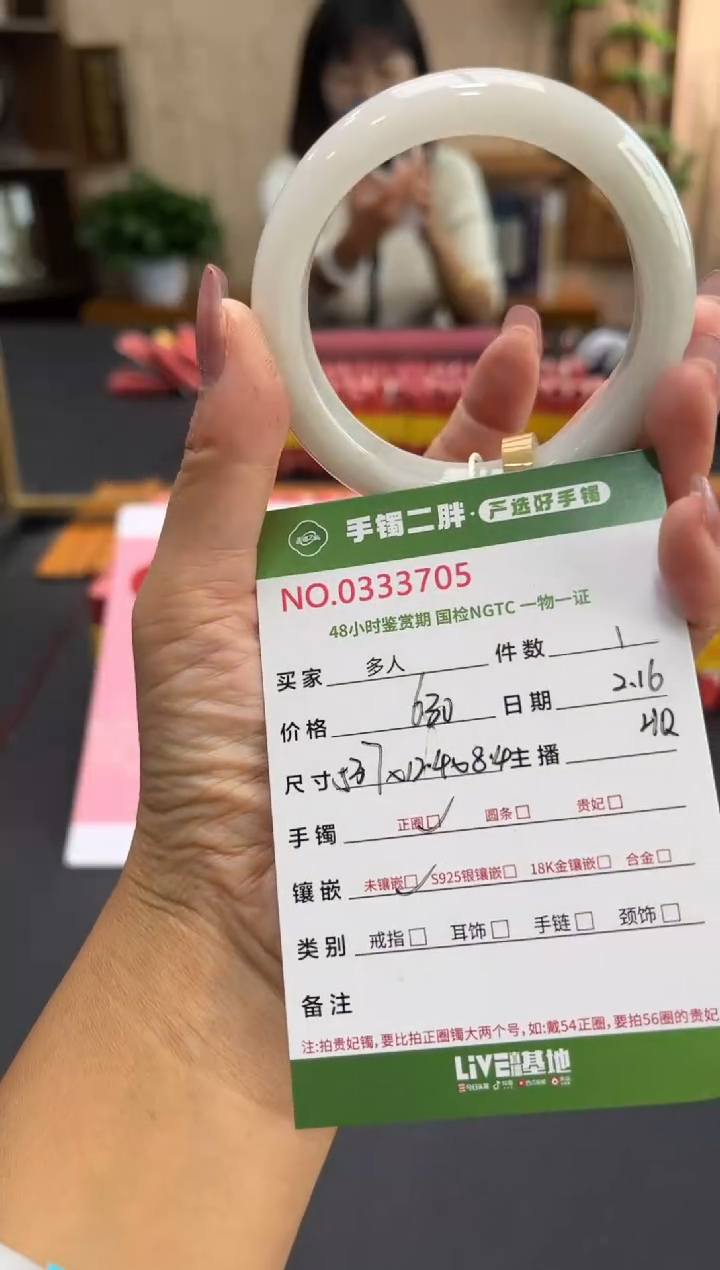 手镯二胖·严选好手镯
NO.0333705
48小时鉴赏期 国检NGTC 一物一证
买家 多人 件数 1
价格 630 日期 2.16
尺寸 537x12.4x8.4 主播 HQ
手镯 正圈☑ 圆条□ 贵妃□
镶嵌 未镶嵌☑ S925银镶嵌□ 18K金镶嵌□ 合金□
类别 戒指□ 耳饰□ 手链□ 颈饰□
备注
注:拍贵妃镯,要比拍正圈镯大两个号,如:戴54正圈,要拍56圈的贵妃
LiVE直播基地